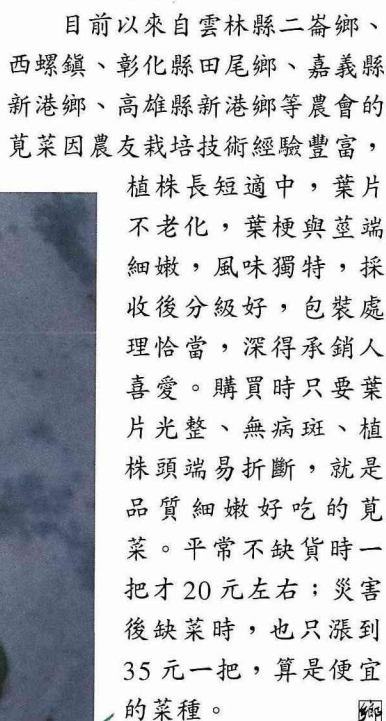 目前以來自雲林縣二崙鄉、
西螺鎮、彰化縣田尾鄉、嘉義縣
新港鄉、高雄縣新港鄉等農會的
莧菜因農友栽培技術經驗豐富，
植株長短適中，葉片
不老化，葉梗與莖端
細嫩，風味獨特，採
收後分級好，包裝處
理恰當，深得承銷人
喜愛。購買時只要葉
片光整、無病斑、植
株頭端易折斷，就是
品質細嫩好吃的莧
菜。平常不缺貨時一
把才20元左右；災害
後缺菜時，也只漲到
35元一把，算是便宜
的菜種。